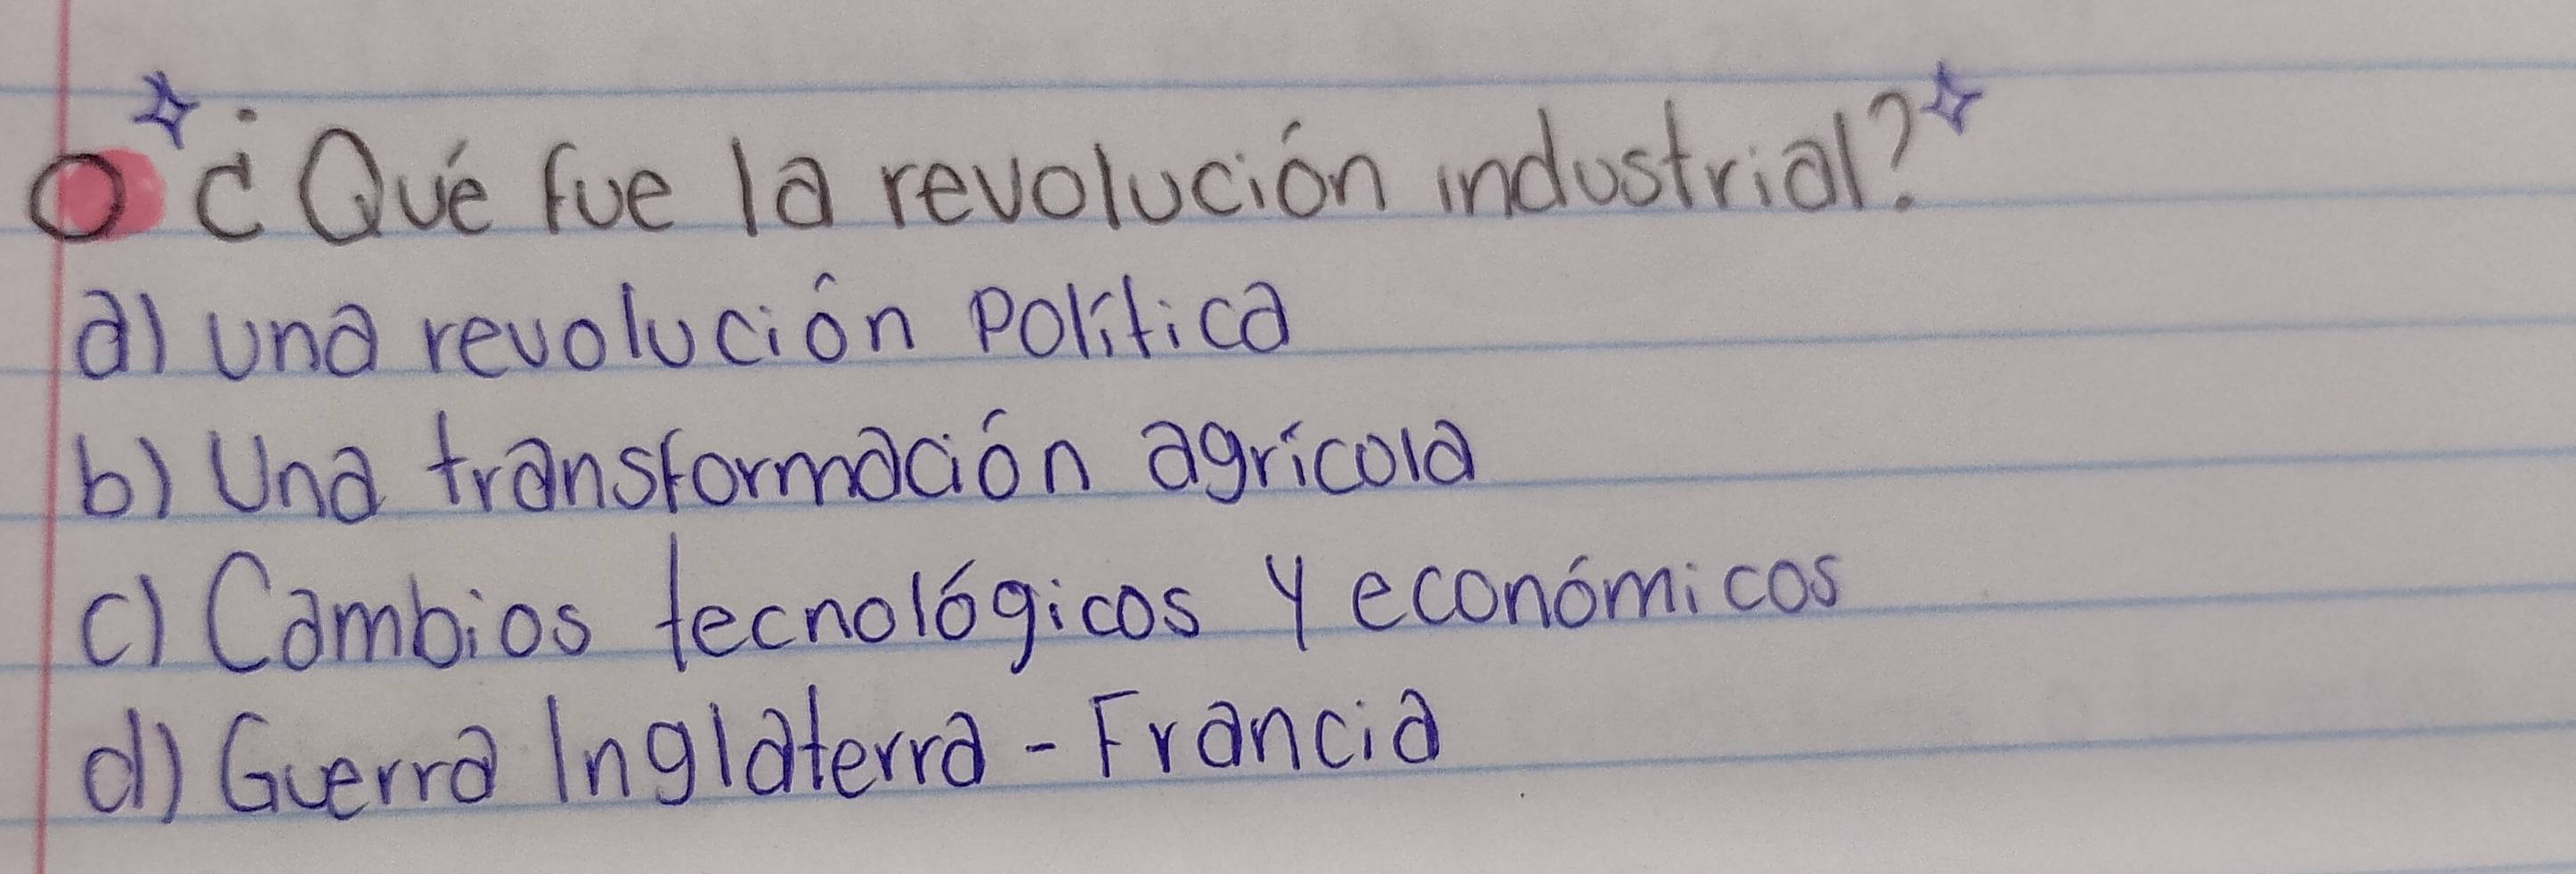 ¿Qué fue la revolución industrial?
a) una revolución Política
b) Una transformación agrícola
c) Cambios tecnológicos y económicos
d) Guerra Inglaterra - Francia